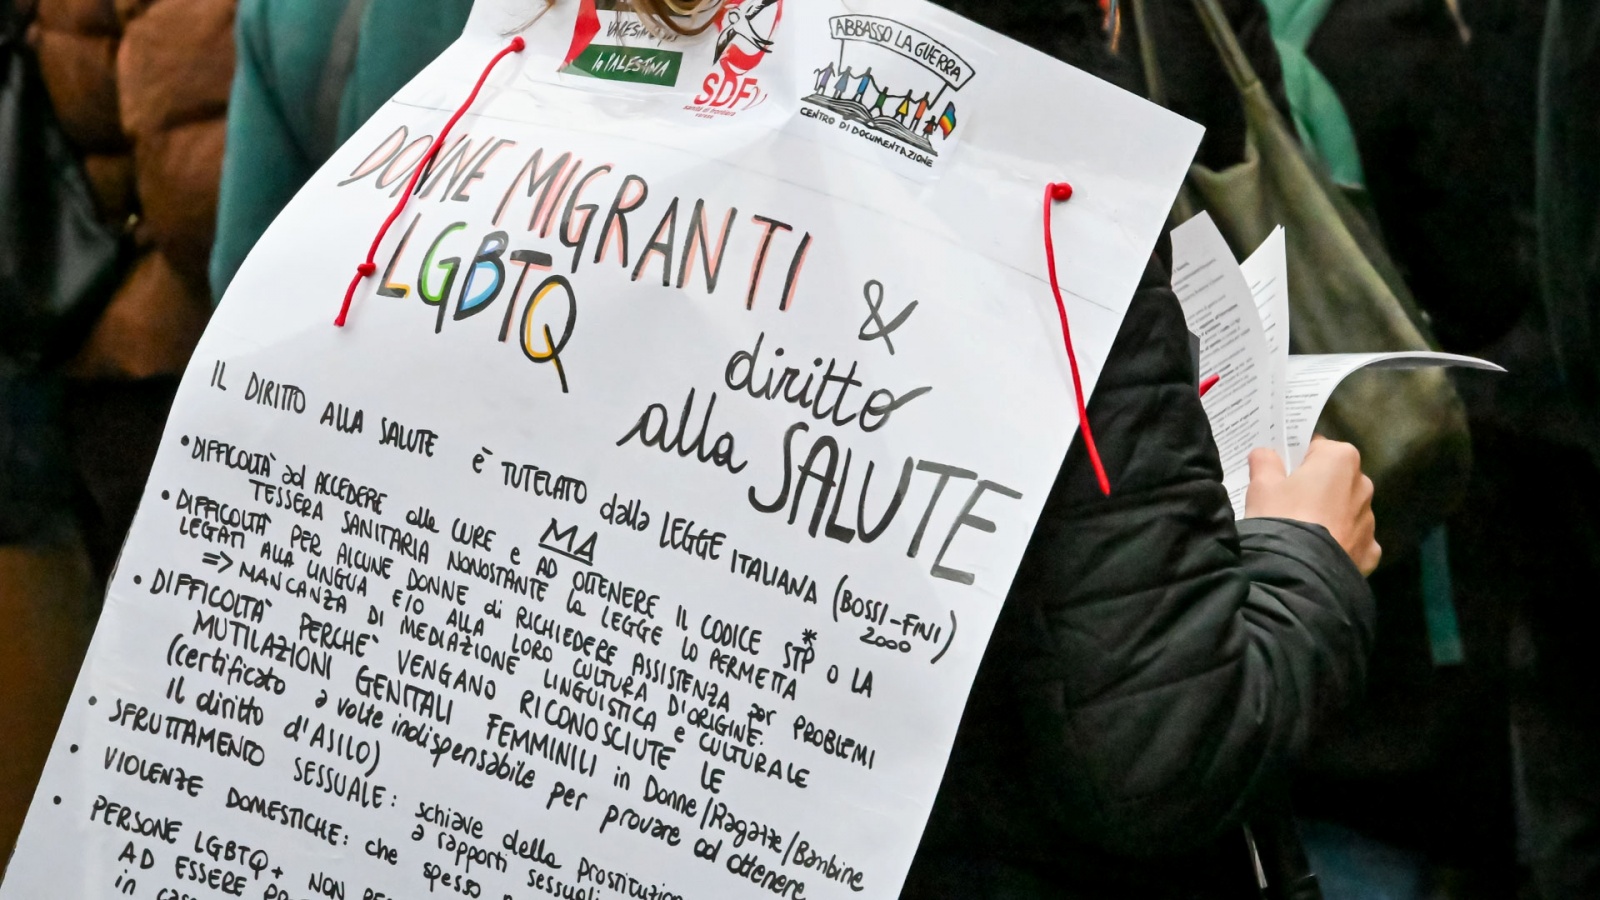 la PALESTINA
SDF
ABBASSO LA GUERRA
CENTRO DI DOCUMENTAZIONE
DONNE MIGRANTI &
LGBTQ
diritto
alla SALUTE
IL DIRITTO ALLA SALUTE È TUTELATO dalla LEGGE ITALIANA (BOSSI-FINI)
2000
MA
• DIFFICOLTÀ ad ACCEDERE alle CURE e AD OTTENERE IL CODICE STP* O LA
TESSERA SANITARIA NONOSTANTE la LEGGE LO PERMETTA
• DIFFICOLTÀ PER ALCUNE DONNE di RICHIEDERE ASSISTENZA per PROBLEMI
LEGATI ALLA LINGUA E/O ALLA LORO CULTURA D'ORIGINE.
=> MANCANZA DI MEDIAZIONE LINGUISTICA e CULTURALE
• DIFFICOLTÀ PERCHÈ VENGANO RICONOSCIUTE LE
MUTILAZIONI GENITALI FEMMINILI in Donne/Ragazze/Bambine
(certificato a volte indispensabile per provare ad ottenere
il diritto d'ASILO)
• SFRUTTAMENTO SESSUALE: schiave della prostituzion
a rapporti sessuali
• VIOLENZE DOMESTICHE: che spesso
• PERSONE LGBTQ+ NON
AD ESSERE
in caso